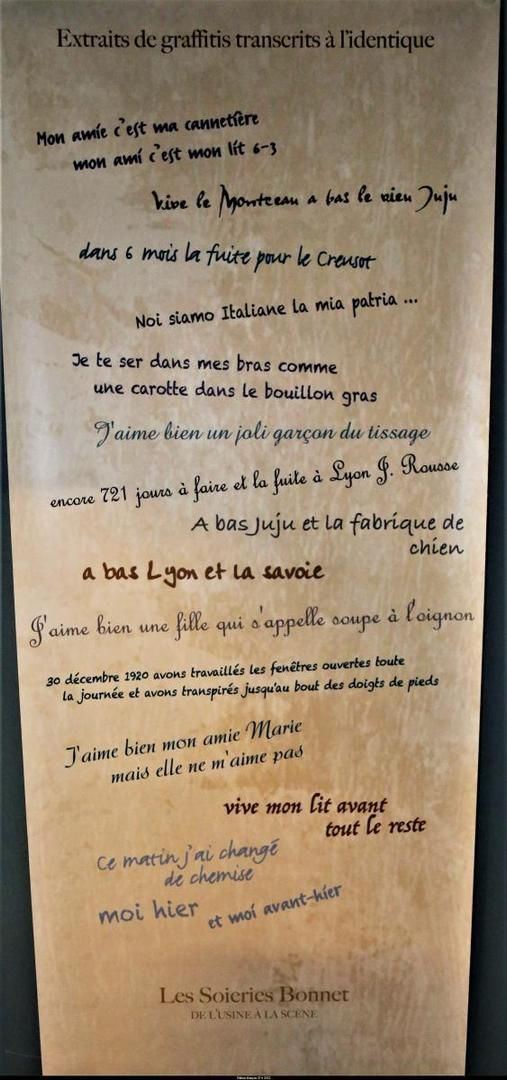 Extraits de graffitis transcrits à l'identique
Mon amie c'est ma cannetière
mon ami c'est mon lit 6-3
Vive le Montceau a bas le vieu Juju
dans 6 mois la fuite pour le Creusot
Noi siamo Italiane la mia patria ...
Je te ser dans mes bras comme
une carotte dans le bouillon gras
J'aime bien un joli garçon du tissage
encore 721 jours à faire et la fuite à Lyon J. Rousse
A bas Juju et la fabrique de
chien
a bas Lyon et la savoie
J'aime bien une fille qui s'appelle soupe à l'oignon
30 décembre 1920 avons travaillés les fenêtres ouvertes toute
la journée et avons transpirés jusqu'au bout des doigts de pieds
J'aime bien mon amie Marie
mais elle ne m'aime pas
vive mon lit avant
tout le reste
Ce matin j'ai changé
de chemise
moi hier
et moi avant-hier
Les Soieries Bonnet
DE L'USINE À LA SCÈNE